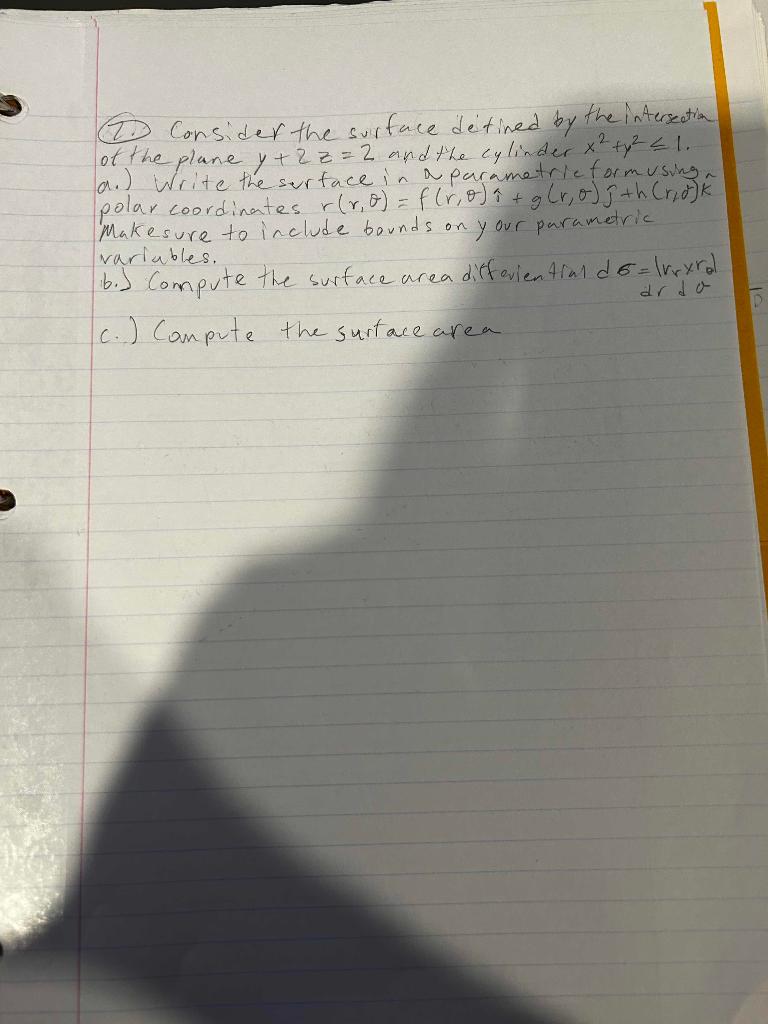 1. Consider the surface defined by the intersection
of the plane y + 2z = 2 and the cylinder x² + y² ≤ 1.
a.) Write the surface in a parametric form using
polar coordinates r(r,θ) = f(r,θ)î + g(r,θ)ĵ + h(r,θ)k
Make sure to include bounds on your parametric
variables.
b.) Compute the surface area differiential dσ = |rr x rθ|
dr dθ
c.) Compute the surface area